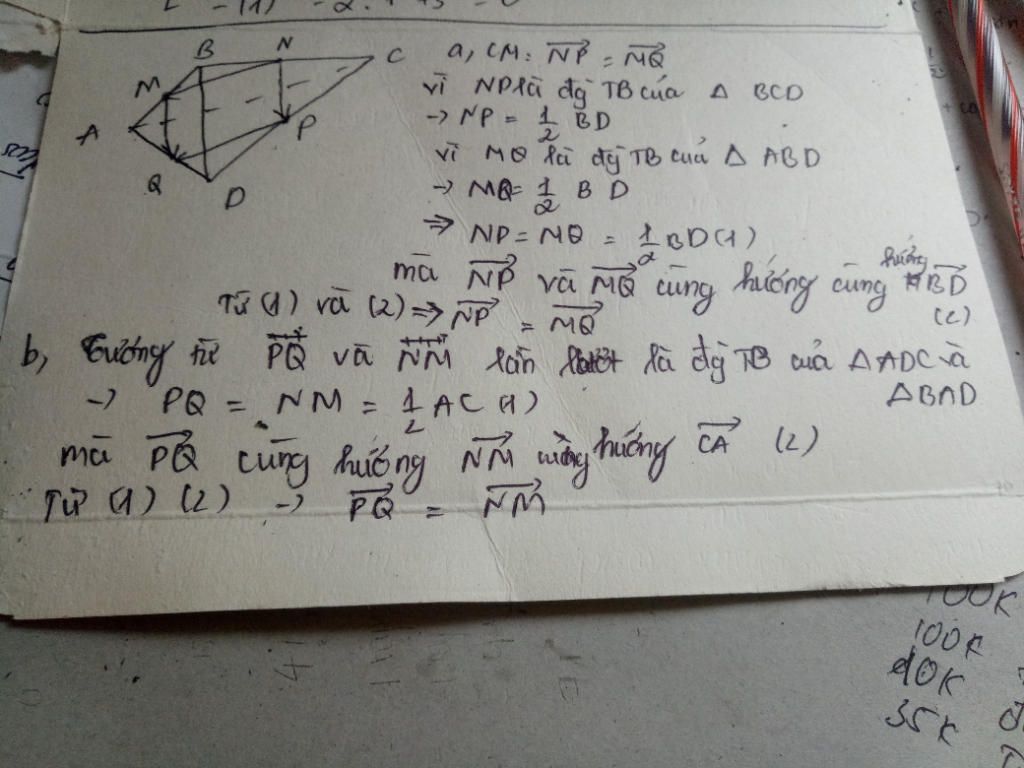 B N C
M
A
P
Q
D
a, CM: NP = MQ
vì NP là đg TB của Δ BCD
→ NP = 1/2 BD
vì MQ là đg TB của Δ ABD
→ MQ = 1/2 BD
⇒ NP = MQ = 1/2 BD (1)
mà NP và MQ cùng hướng cùng hướng BD
Từ (1) và (2) ⇒ NP = MQ (2)
b, Tương tự PQ và NM lần lượt là đg TB của Δ ADC và
Δ BAD
→ PQ = NM = 1/2 AC (1)
mà PQ cùng hướng NM cùng hướng CA (2)
Từ (1) (2) → PQ = NM
100K
100K
40K
35K